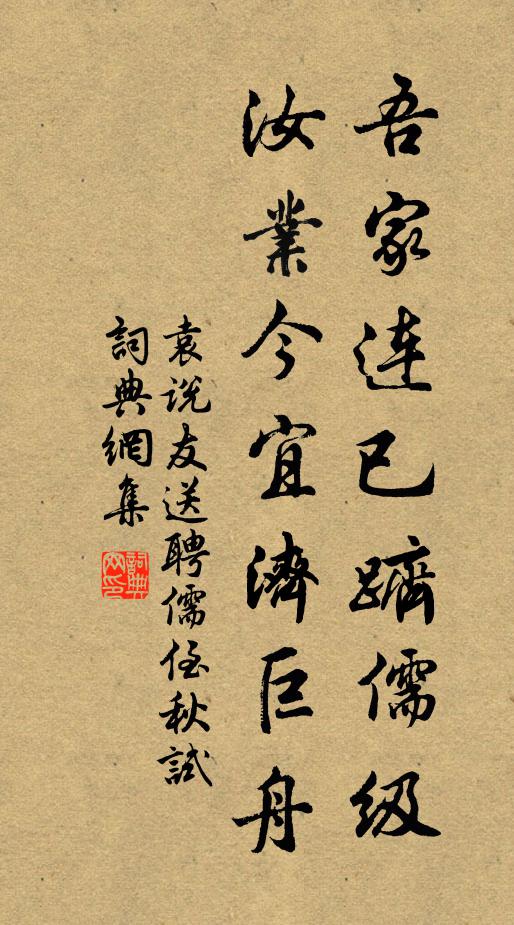 吾家连已躋儒级
汝業今宜濟巨舟
袁说友送聘儒侄秋試
詞典網集
詞典网印